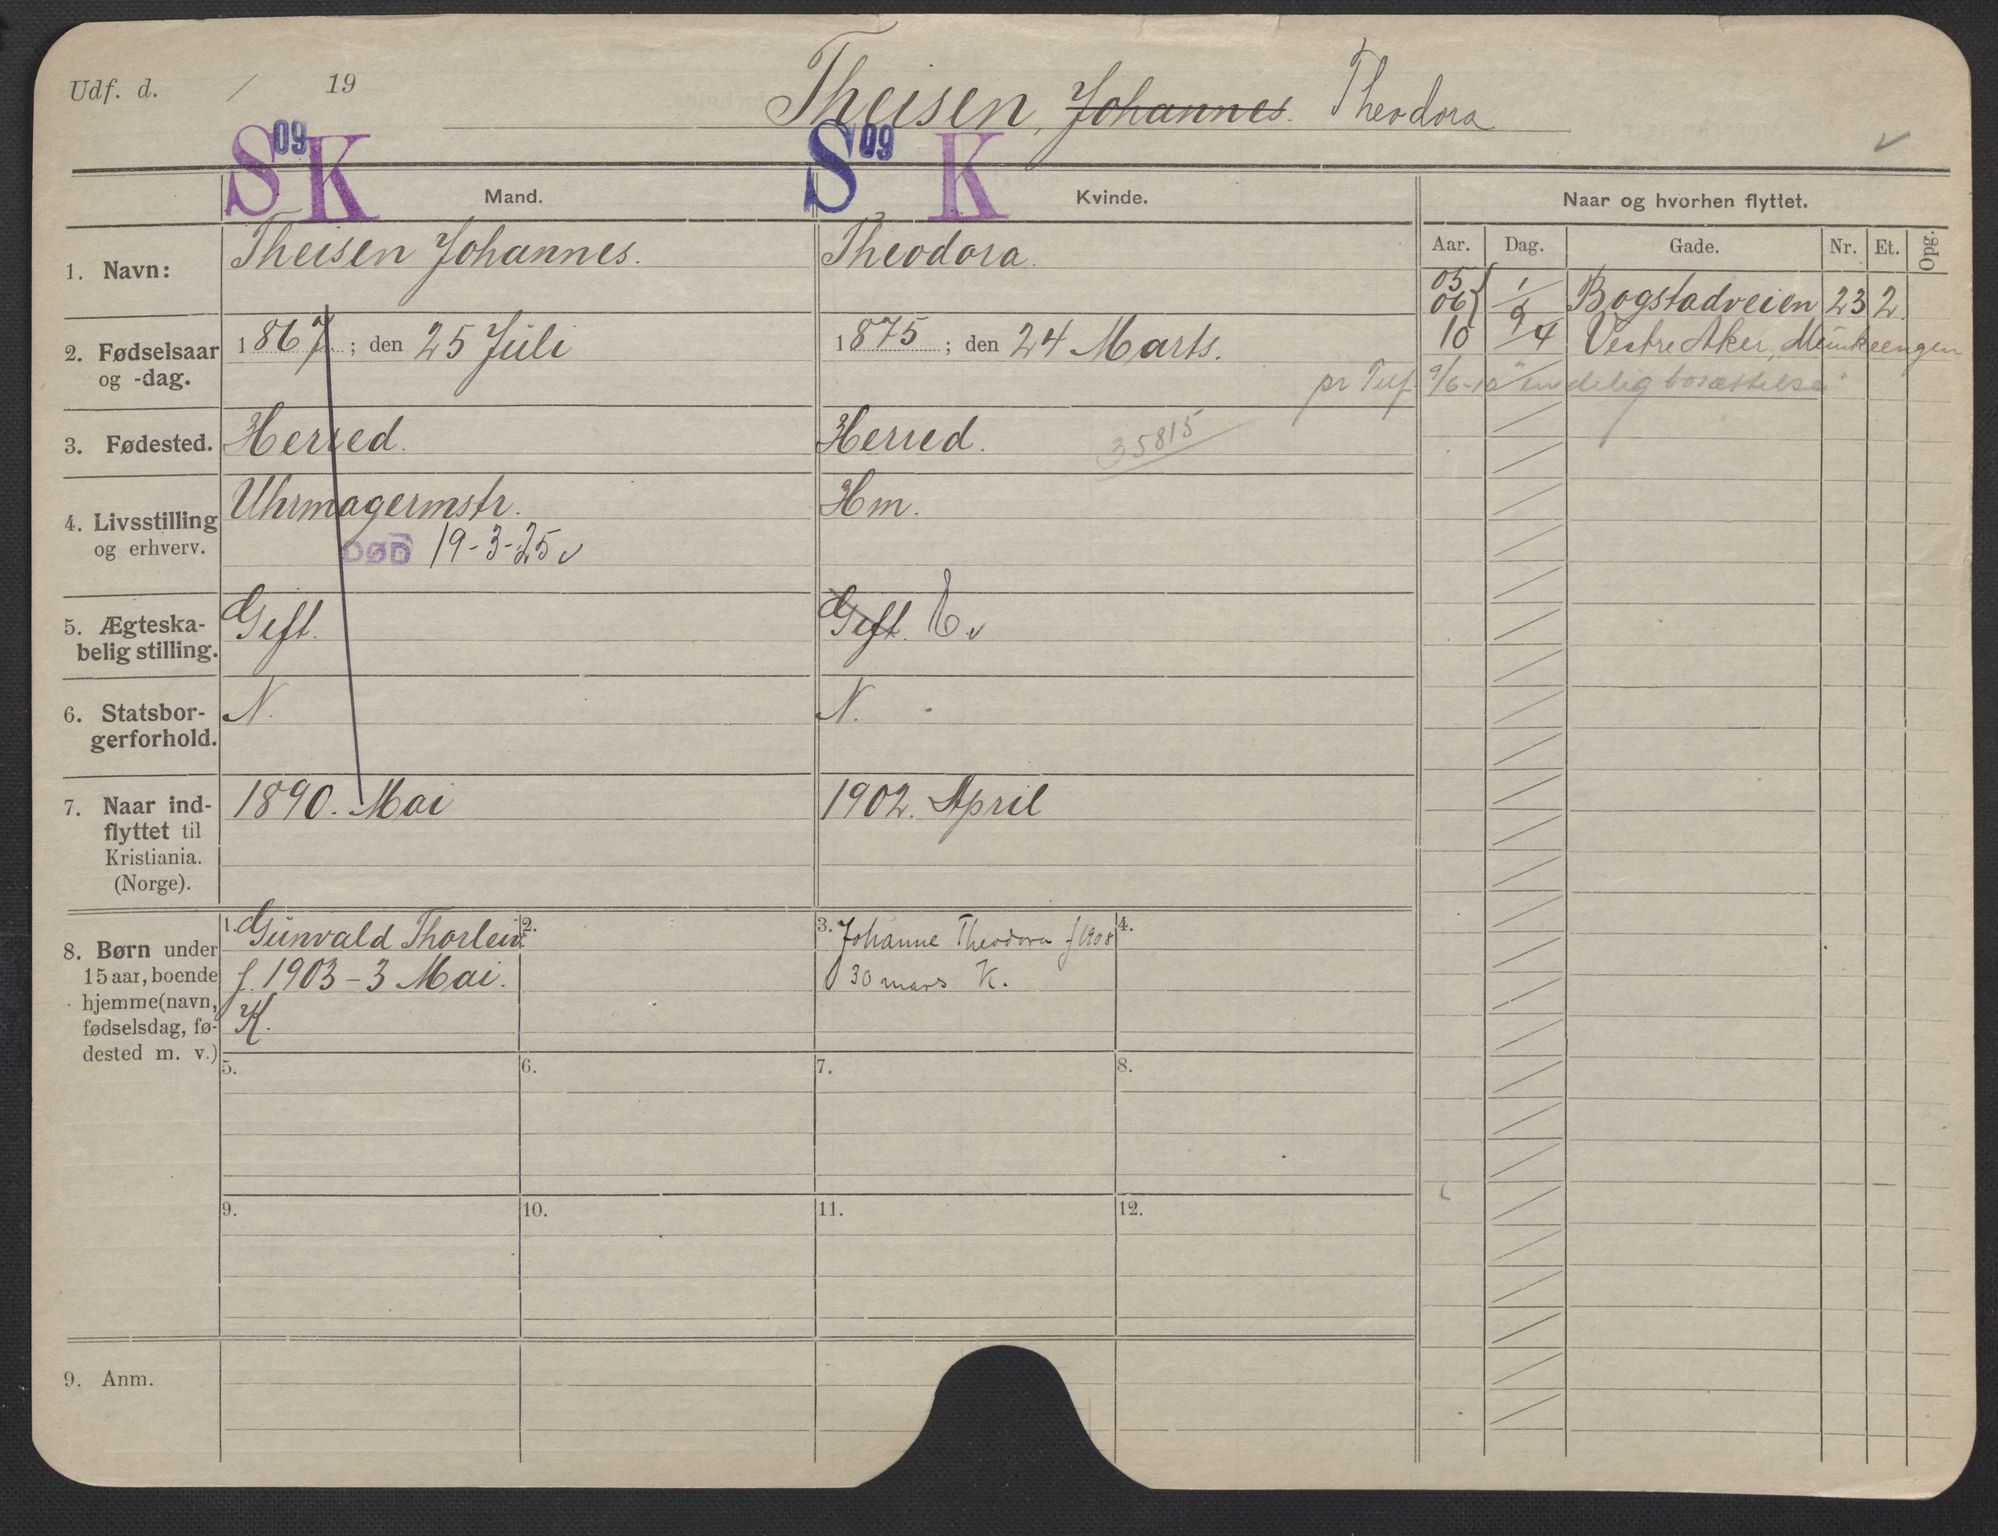 Udf. d. / 19
Theisen, Johannes. Theodora
S 09 K S 09 K
Mand. Kvinde. Naar og hvorhen flyttet.
Aar. Dag. Gade. Nr. Et. Opg.
1. Navn: Theisen Johannes. Theodora.
05 / 06 1/9 Bogstadveien 23 2
10 /4 Vestre Aker, Munkeengen
2. Fødselsaar og -dag. 1867; den 25 Juli 1875; den 24 Marts.
pr Telf. 9/6-10 "endelig bosættelse"
3. Fødested. Herred. Herred. 35815
4. Livsstilling og erhverv. Uhrmagermstr. Hm.
DØD 19-3-25 v
5. Ægteska-
belig stilling. Gift. Gift. E. v
6. Statsbor-
gerforhold. N. N.
7. Naar ind-
flyttet til
Kristiania.
(Norge).
1890. Mai 1902. April
8. Børn under
15 aar, boende
hjemme (navn,
fødselsdag, fø-
dested m. v.)
1. Gunvald Thorleiv
f. 1903 - 3 Mai.
K.
2.
3. Johanne Theodora f 1908
30 mars K.
4.
5. 6. 7. 8.
9. 10. 11. 12.
9. Anm.